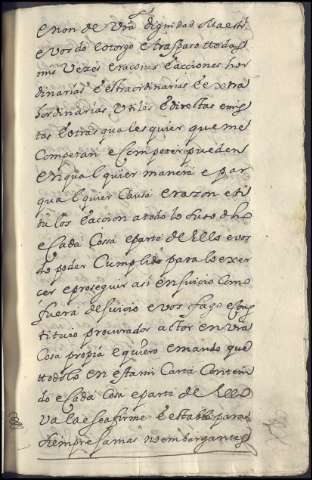 e non de Vra dignidad Maestr
e vos do e otorgo e traspaso todas
mis vezes e raçiones e acciones hor
dinarias e estraordinarias e extra
hordinarias utiles e diretas mis
tas e otras quales quier que me
Competan e Competer pueden
en qual quier manera e por
qual quier Causa e razon e ti
tulos e accion a todo lo suso dho
e Cada Cossa e parte dello e vos
do poder Cumplido para lo exer
cer e proseguir asi en Juicio Como
fuera de Juicio e vos fago e Cons
tituio procurador actor en Vra
Cosa propia e quiero e mando que
todo lo en esta mi Carta Conteni
do e Cada Cosa e parte dello
Vala e sea firme e estable para
siempre Jamas no embargantes